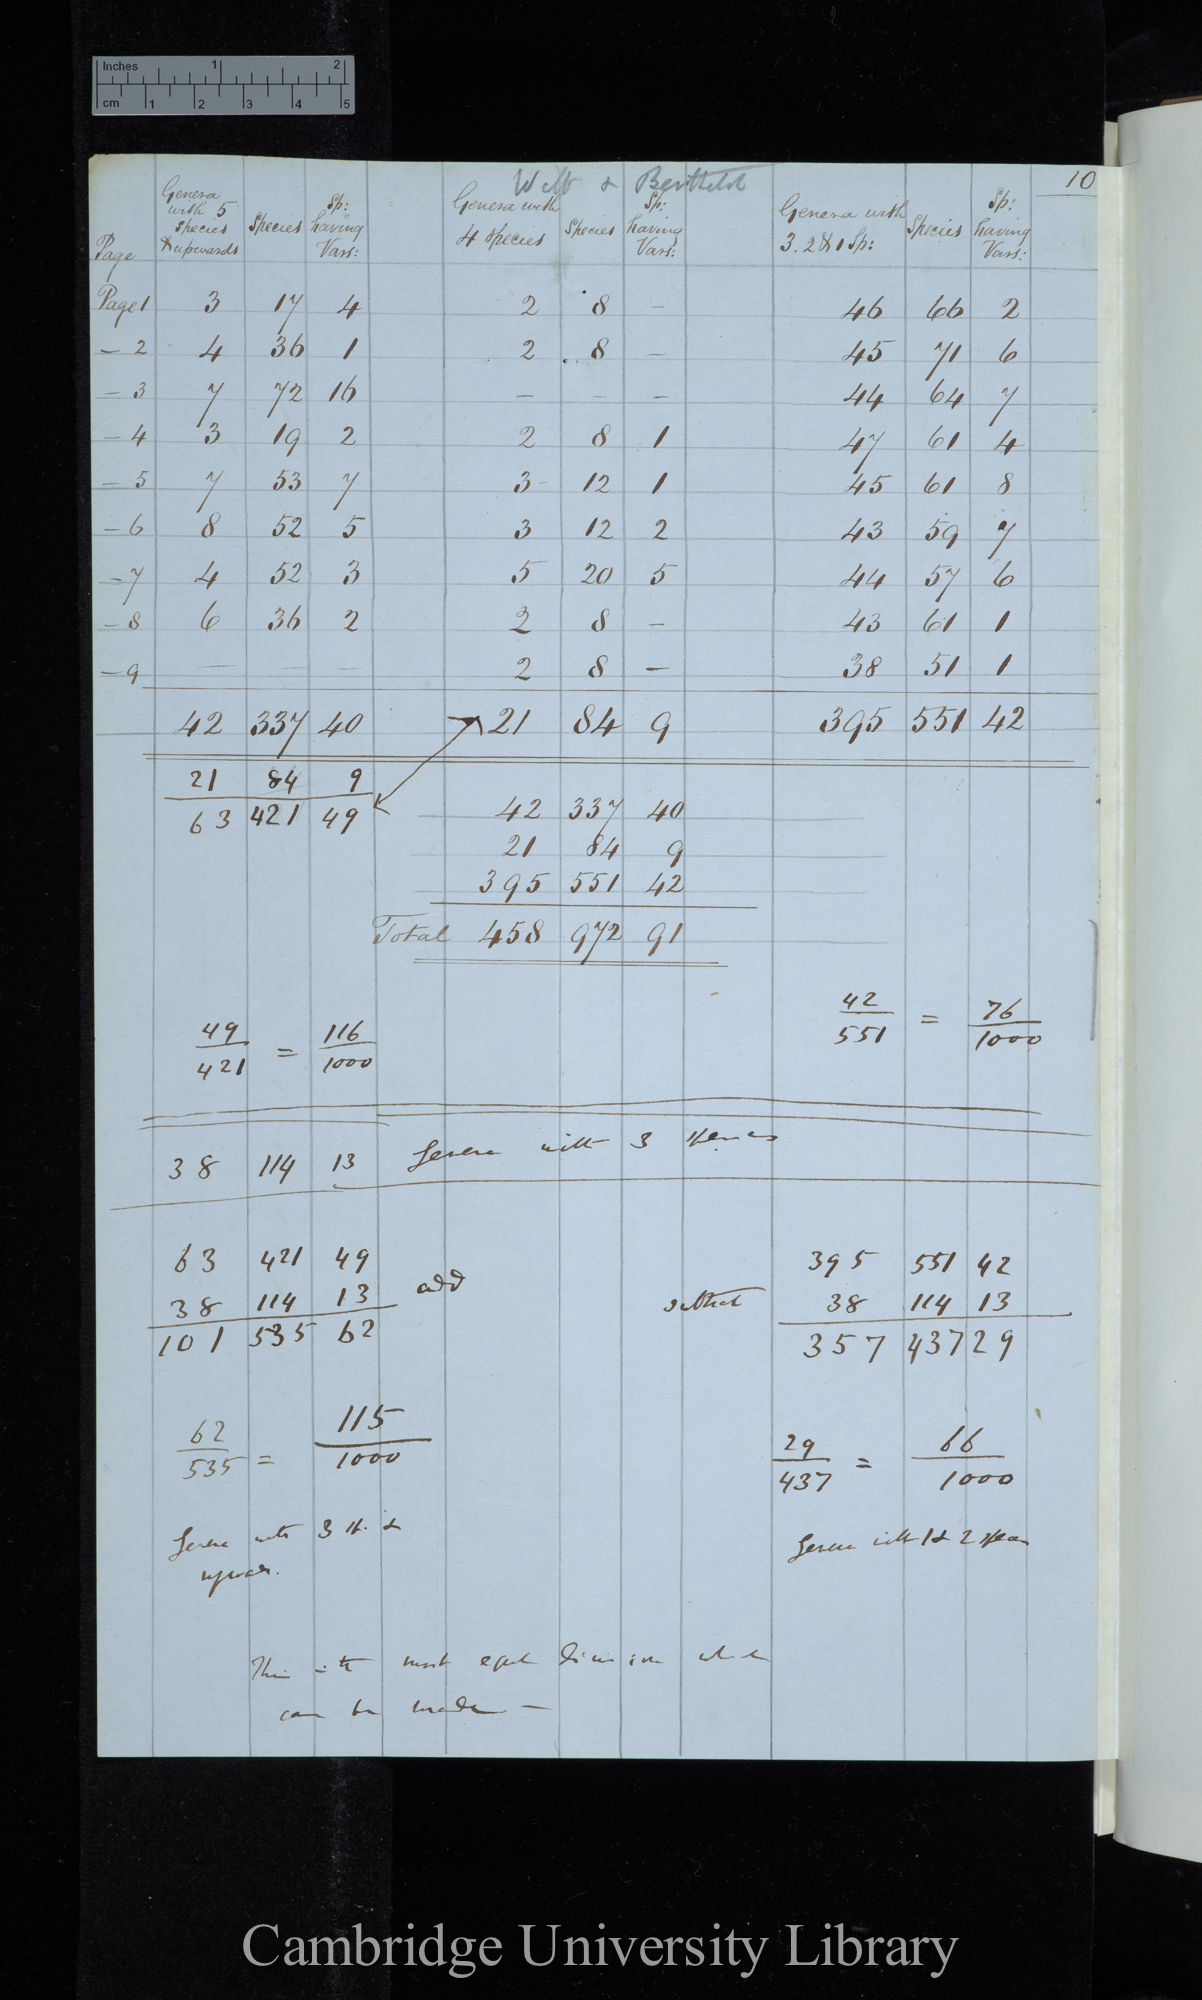 Inches 1 2
cm 1 2 3 4 5
Webb & Berthelot
10
Page | Genera with 5 species & upwards | Species | Sp: having Vars: | Genera with 4 species | Species | Sp: having Vars: | Genera with 3. 2 & 1 Sp: | Species | Sp: having Vars:
Page 1 3 17 4 2 8 – 46 66 2
– 2 4 36 1 2 8 – 45 71 6
– 3 7 72 16 – – – 44 64 7
– 4 3 19 2 2 8 1 47 61 4
– 5 7 53 7 3 12 1 45 61 8
– 6 8 52 5 3 12 2 43 59 7
– 7 4 52 3 5 20 5 44 57 6
– 8 6 36 2 2 8 – 43 61 1
– 9 – – – 2 8 – 38 51 1
42 337 40 21 84 9 395 551 42
21 84 9
63 421 49
42 337 40
21 84 9
395 551 42
Total 458 972 91
49/421 = 116/1000
42/551 = 76/1000
38 114 13 Genera with 3 species
63 421 49
38 114 13 add
101 535 62
395 551 42
subtract 38 114 13
357 437 29
62/535 = 115/1000
29/437 = 66/1000
Genera with 3 sp. &
upwards.
Genera with 1 & 2 species
This is the most equal division which
can be made –
Cambridge University Library